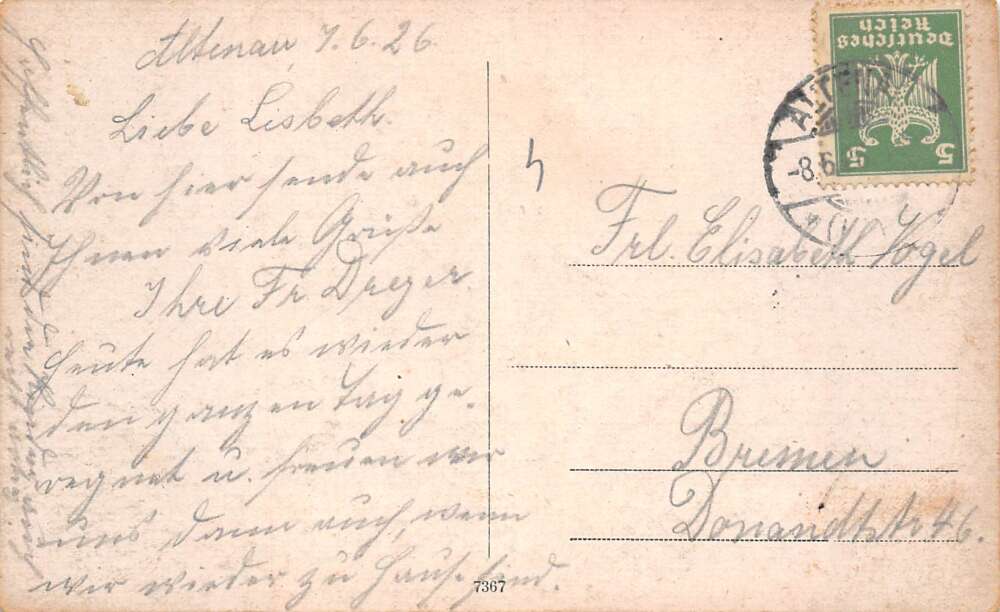 Altenau, 7.6.26.
Liebe Lisbeth.
Von hier sende auch
Ihnen viele Grüße
Ihre Fr. Dreyer.
Heute hat es wieder
den ganzen Tag ge-
regnet u. freuen wir
uns dann auch, wenn
wir wieder zu Hause sind.
Deutsches
Reich
5 5
ALTENAU
-8.6
Frl. Elisabeth Vogel
Bremen
Donandtstr 46.
7367